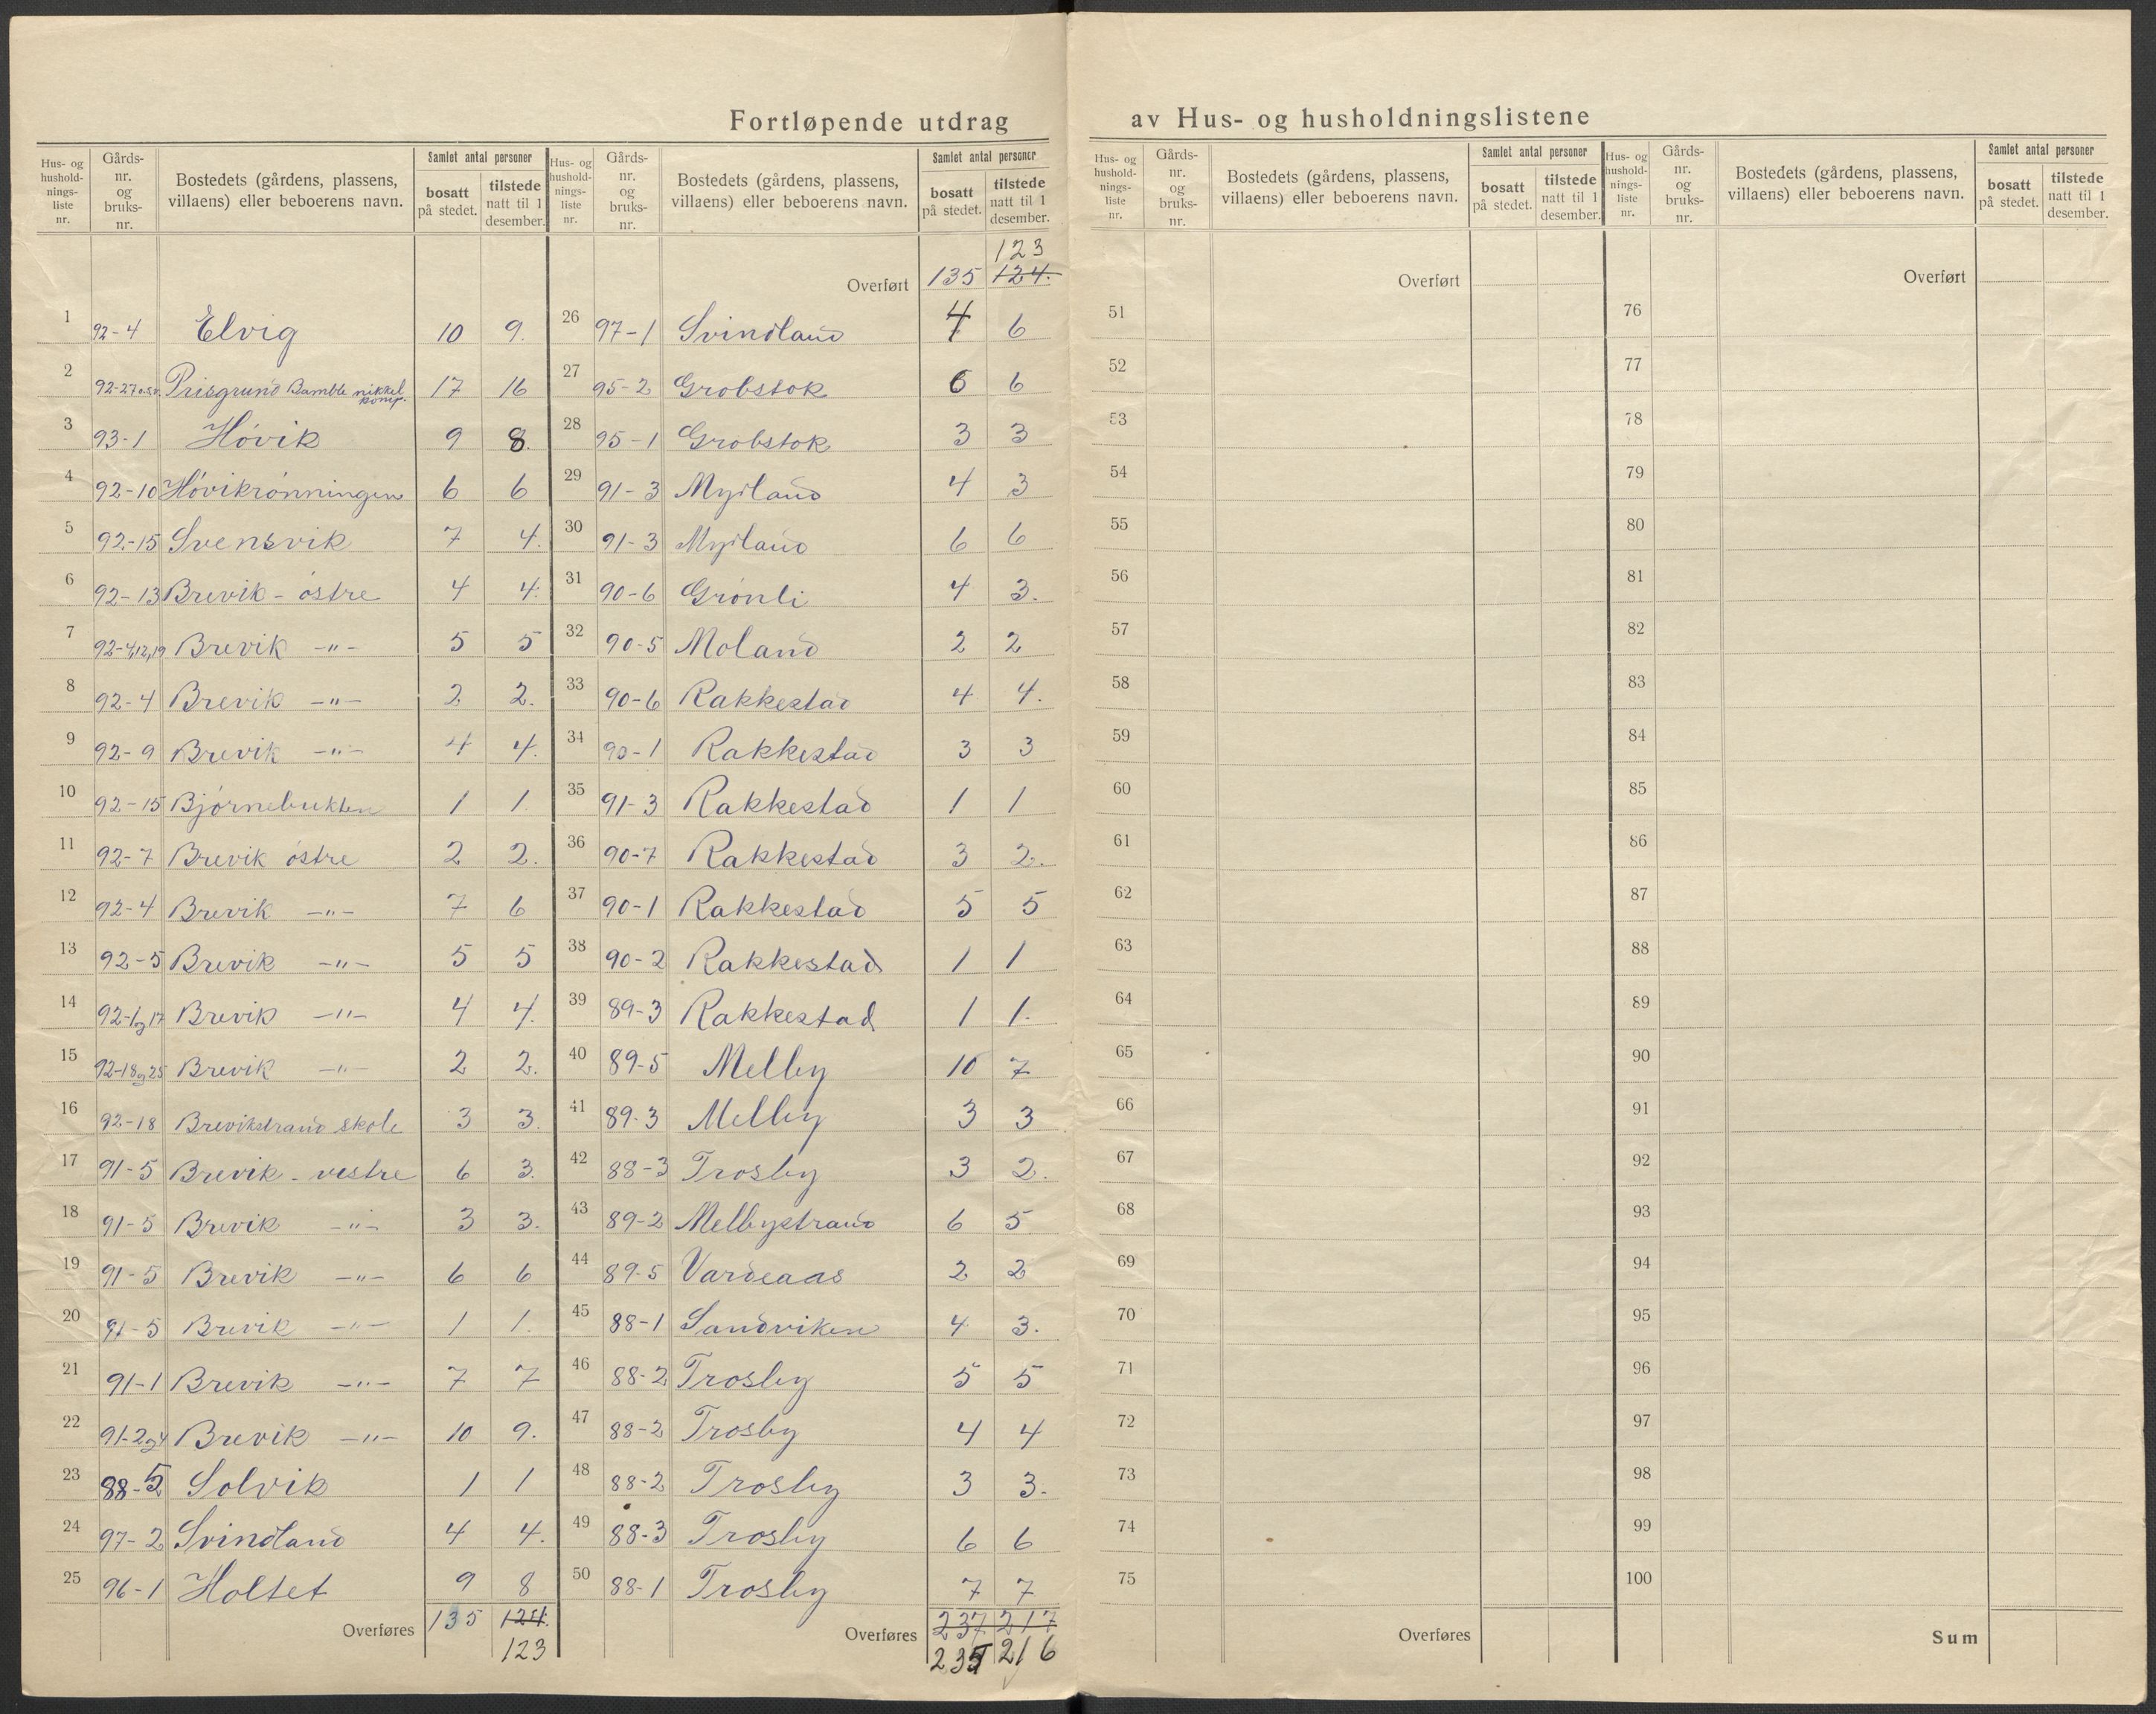 Fortløpende utdrag av Hus- og husholdningslistene
Hus- og husholdnings-liste nr. | Gårds-nr. og bruks-nr. | Bostedets (gårdens, plassens, villaens) eller beboerens navn. | Samlet antal personer | bosatt på stedet. | tilstede natt til 1 desember.
1 92-4 Elvig 10 9.
2 92-27 o.s.v. Prisgrund Bamble nikkel komp. 17 16
3 93-1 Hóvik 9 8.
4 92-10 Hóvikrónningen 6 6
5 92-15 Svensvik 7 4.
6 92-13 Brevik - óstre 4 4.
7 92-4,12,19 Brevik -"- 5 5
8 92-4 Brevik -"- 2 2.
9 92-9 Brevik -"- 4 4.
10 92-15 Bjórnebukten 1 1.
11 92-7 Brevik óstre 2 2.
12 92-4 Brevik -"- 7 6
13 92-5 Brevik -"- 5 5
14 92-1 og 17 Brevik -"- 4 4.
15 92-18 og 25 Brevik -"- 2 2.
16 92-18 Brevikstrand skole 3 3.
17 91-5 Brevik - vestre 6 3.
18 91-5 Brevik -"- 3 3.
19 91-5 Brevik -"- 6 6
20 91-5 Brevik -"- 1 1.
21 91-1 Brevik -"- 7 7
22 91-2 og 4 Brevik -"- 10 9.
23 88-5 Solvik 1 1
24 97-2 Svindland 4 4.
25 96-1 Holtet 9 8
Overføres 135 124.
123
Hus- og husholdnings-liste nr. | Gårds-nr. og bruks-nr. | Bostedets (gårdens, plassens, villaens) eller beboerens navn. | Samlet antal personer | bosatt på stedet. | tilstede natt til 1 desember.
123
Overført 135 124.
26 97-1 Svindland 4 6
27 95-2 Grobstok 6 6
28 95-1 Grobstok 3 3
29 91-3 Myrland 4 3
30 91-3 Myrland 6 6
31 90-6 Grónli 4 3.
32 90-5 Moland 2 2
33 90-6 Rakkestad 4 4.
34 90-1 Rakkestad 3 3
35 91-3 Rakkestad 1 1
36 90-7 Rakkestad 3 2.
37 90-1 Rakkestad 5 5
38 90-2 Rakkestad 1 1
39 89-3 Rakkestad 1 1.
40 89-5 Melby 10 7
41 89-3 Melby 3 3
42 88-3 Trosby 3 2.
43 89-2 Melbystrand 6 5
44 89-5 Vardeaas 2 2
45 88-1 Sandviken 4 3.
46 88-2 Trosby 5 5
47 88-2 Trosby 4 4
48 88-2 Trosby 3 3.
49 88-3 Trosby 6 6
50 88-1 Trosby 7 7
Overføres 237 217
235 216
Hus- og husholdnings-liste nr. | Gårds-nr. og bruks-nr. | Bostedets (gårdens, plassens, villaens) eller beboerens navn. | Samlet antal personer | bosatt på stedet. | tilstede natt til 1 desember.
Overført
51
52
53
54
55
56
57
58
59
60
61
62
63
64
65
66
67
68
69
70
71
72
73
74
75
Overføres
Hus- og husholdnings-liste nr. | Gårds-nr. og bruks-nr. | Bostedets (gårdens, plassens, villaens) eller beboerens navn. | Samlet antal personer | bosatt på stedet. | tilstede natt til 1 desember.
Overført
76
77
78
79
80
81
82
83
84
85
86
87
88
89
90
91
92
93
94
95
96
97
98
99
100
Sum